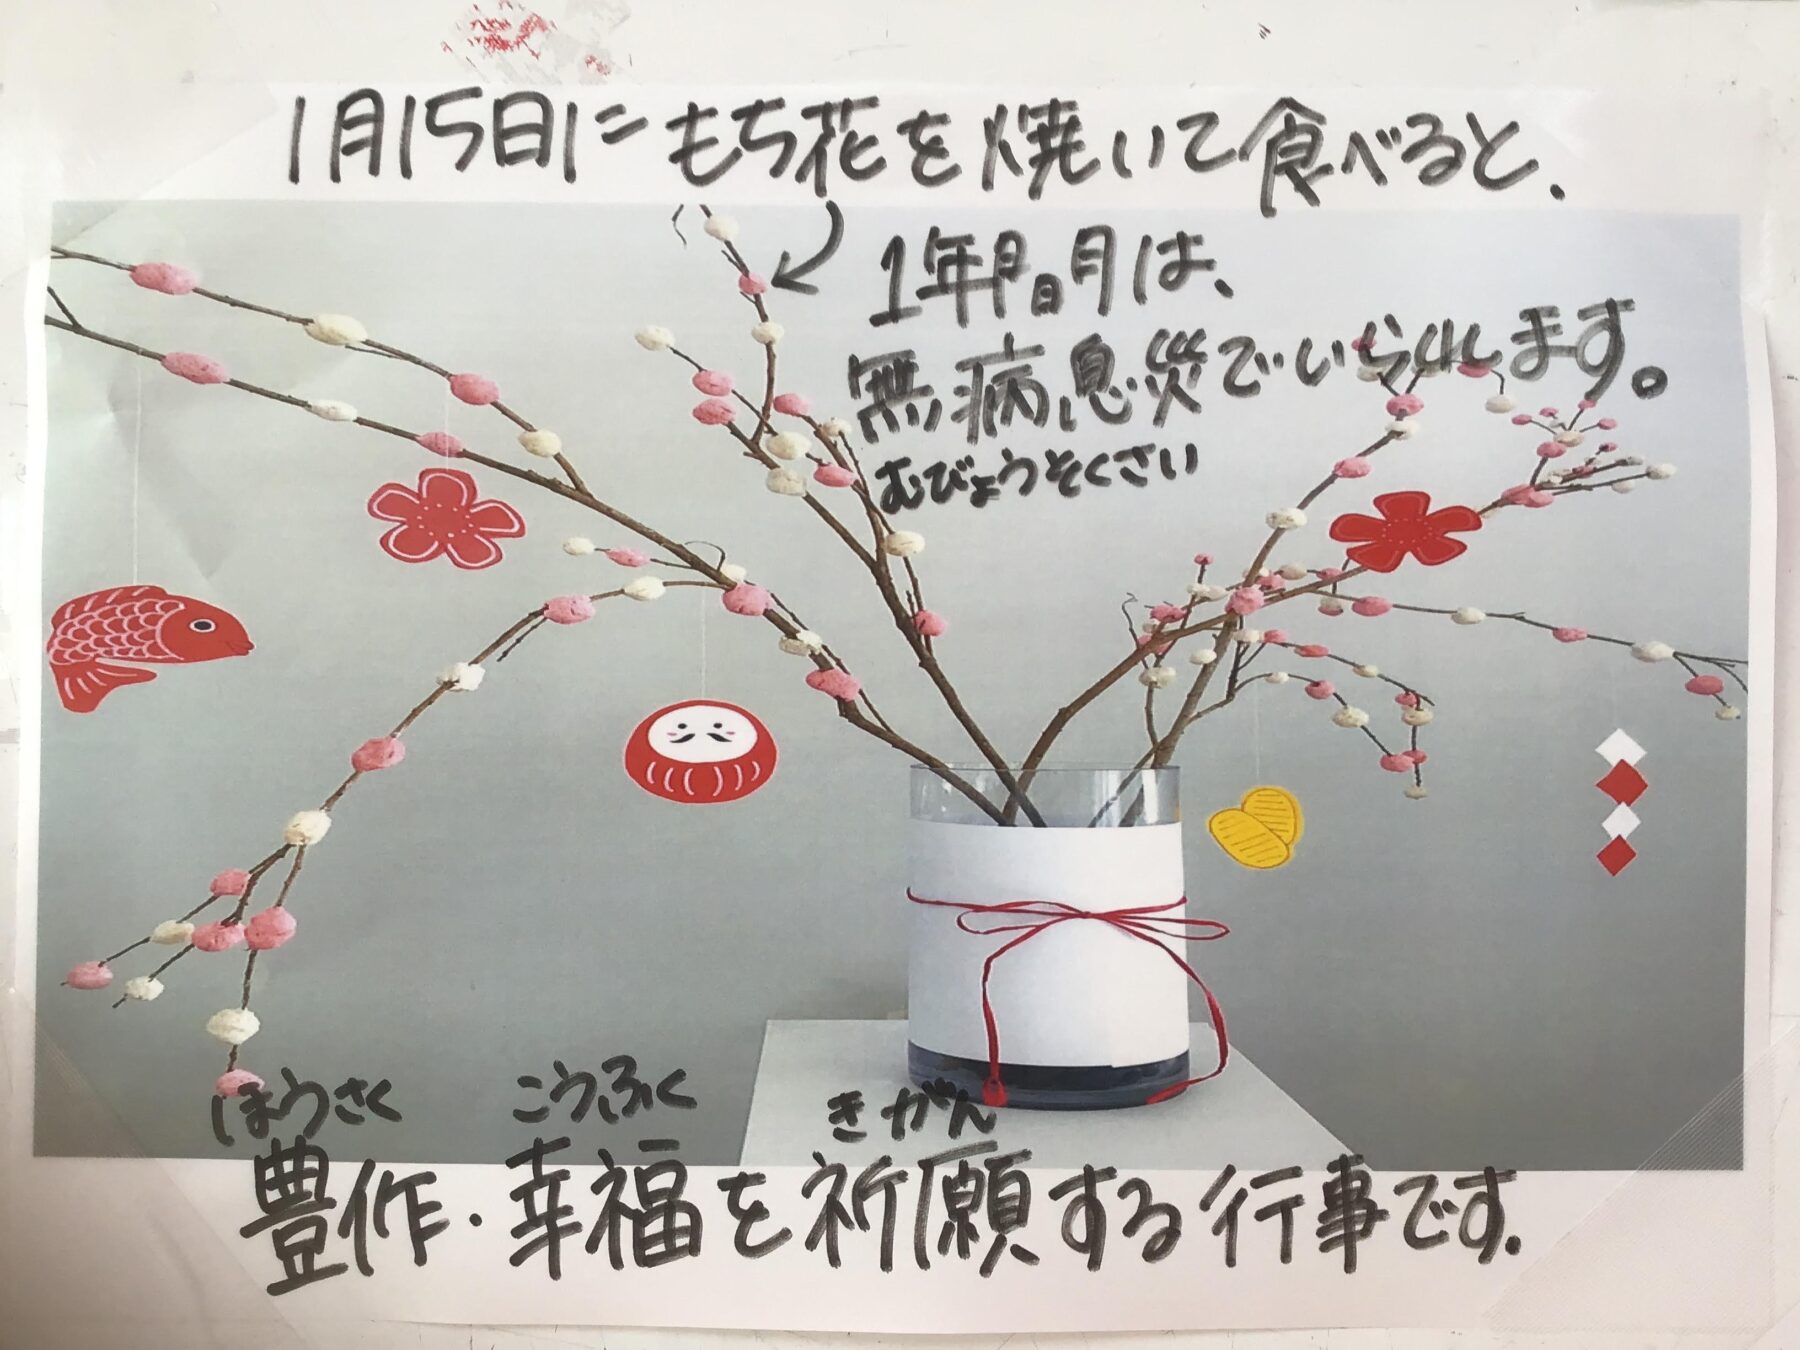 1月15日にもち花を焼いて食べると、
1年間月は、
無病息災でいられます。
むびょうそくさい
ほうさく こうふく きがん
豊作・幸福を祈願する行事です。